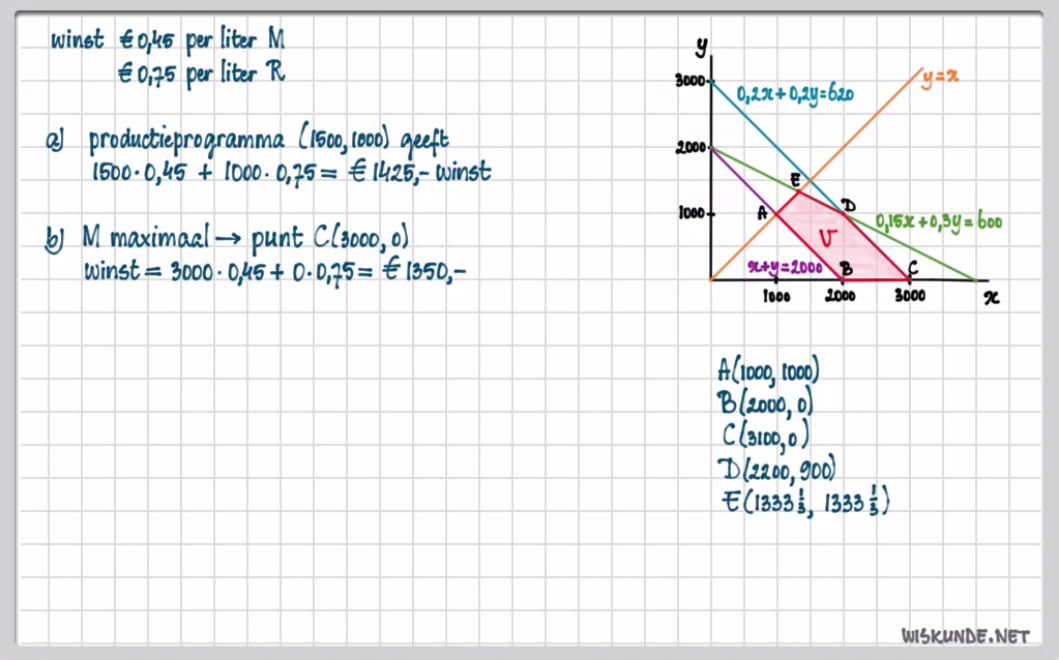 winst € 0,45 per liter M
€ 0,75 per liter R
a) productieprogramma (1500, 1000) geeft
1500 · 0,45 + 1000 · 0,75 = € 1425,- winst
b) M maximaal → punt C(3000, 0)
winst = 3000 · 0,45 + 0 · 0,75 = € 1350,-
y
3000
0,2x + 0,2y = 620
y = x
2000
E
1000
A
D
0,15x + 0,3y = 600
V
x+y = 2000
B
C
1000
2000
3000
x
A(1000, 1000)
B(2000, 0)
C(3100, 0)
D(2200, 900)
E(1333 1/3, 1333 1/3)
WISKUNDE.NET